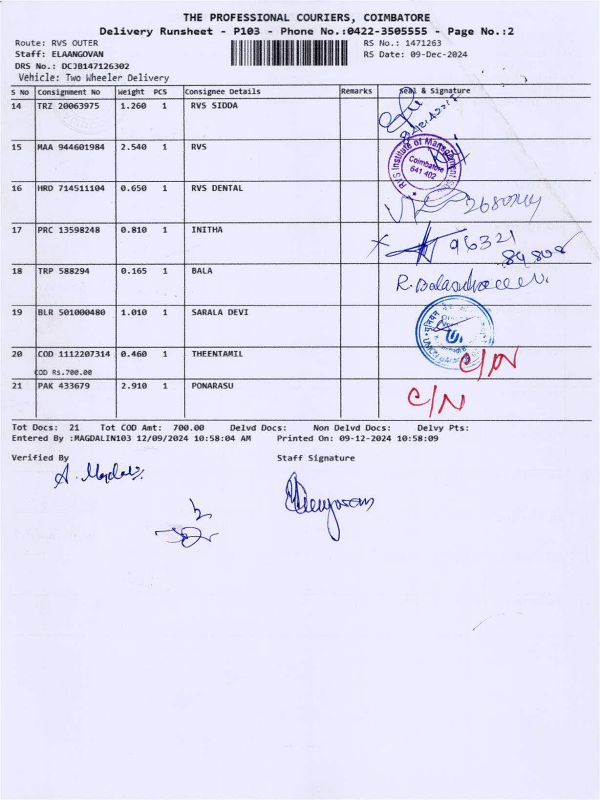 THE PROFESSIONAL COURIERS, COIMBATORE
Delivery Runsheet - P103 - Phone No.:0422-3505555 - Page No.:2
Route: RVS OUTER RS No.: 1471263
Staff: ELAANGOVAN RS Date: 09-Dec-2024
DRS No.: DCJB147126302
Vehicle: Two Wheeler Delivery
S No Consignment No Weight PCS Consignee Details Remarks Seal & Signature
14 TRZ 20063975 1.260 1 RVS SIDDA
15 MAA 944601984 2.540 1 RVS
RVS Institute of Management
Coimbatore
641 402
16 HRD 714511104 0.650 1 RVS DENTAL
17 PRC 13598248 0.810 1 INITHA 96321
84808
18 TRP 588294 0.165 1 BALA
19 BLR 501000480 1.010 1 SARALA DEVI
20 COD 1112207314 0.460 1 THEENTAMIL C/N
COD Rs.700.00
21 PAK 433679 2.910 1 PONARASU C/N
Tot Docs: 21 Tot COD Amt: 700.00 Delvd Docs: Non Delvd Docs: Delvy Pts:
Entered By :MAGDALIN103 12/09/2024 10:58:04 AM Printed On: 09-12-2024 10:58:09
Verified By Staff Signature